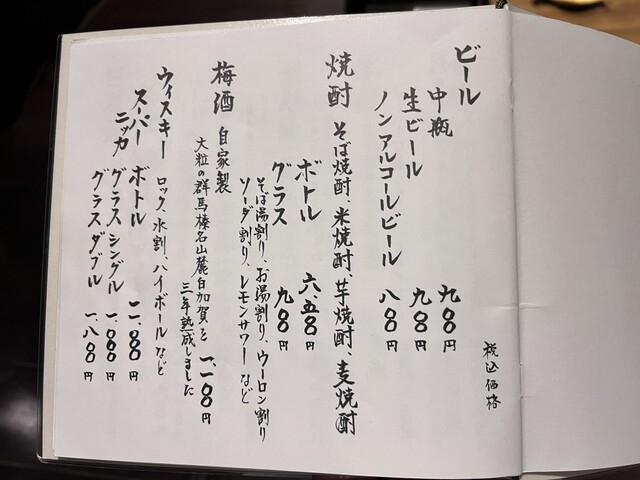 税込価格
ビール
中瓶 九〇〇円
生ビール 九〇〇円
ノンアルコールビール 八〇〇円
焼酎 そば焼酎、米焼酎、芋焼酎、麦焼酎
ボトル 六、五〇〇円
グラス 九〇〇円
そば湯割り、お湯割り、ウーロン割り
ソーダ割り、レモンサワーなど
梅酒 自家製
大粒の群馬榛名山麓白加賀を 一、一〇〇円
三年熟成しました
ウィスキー ロック、水割、ハイボールなど
スーパーニッカ ボトル 一一、〇〇〇円
グラスシングル 一、〇〇〇円
グラスダブル 一、八〇〇円